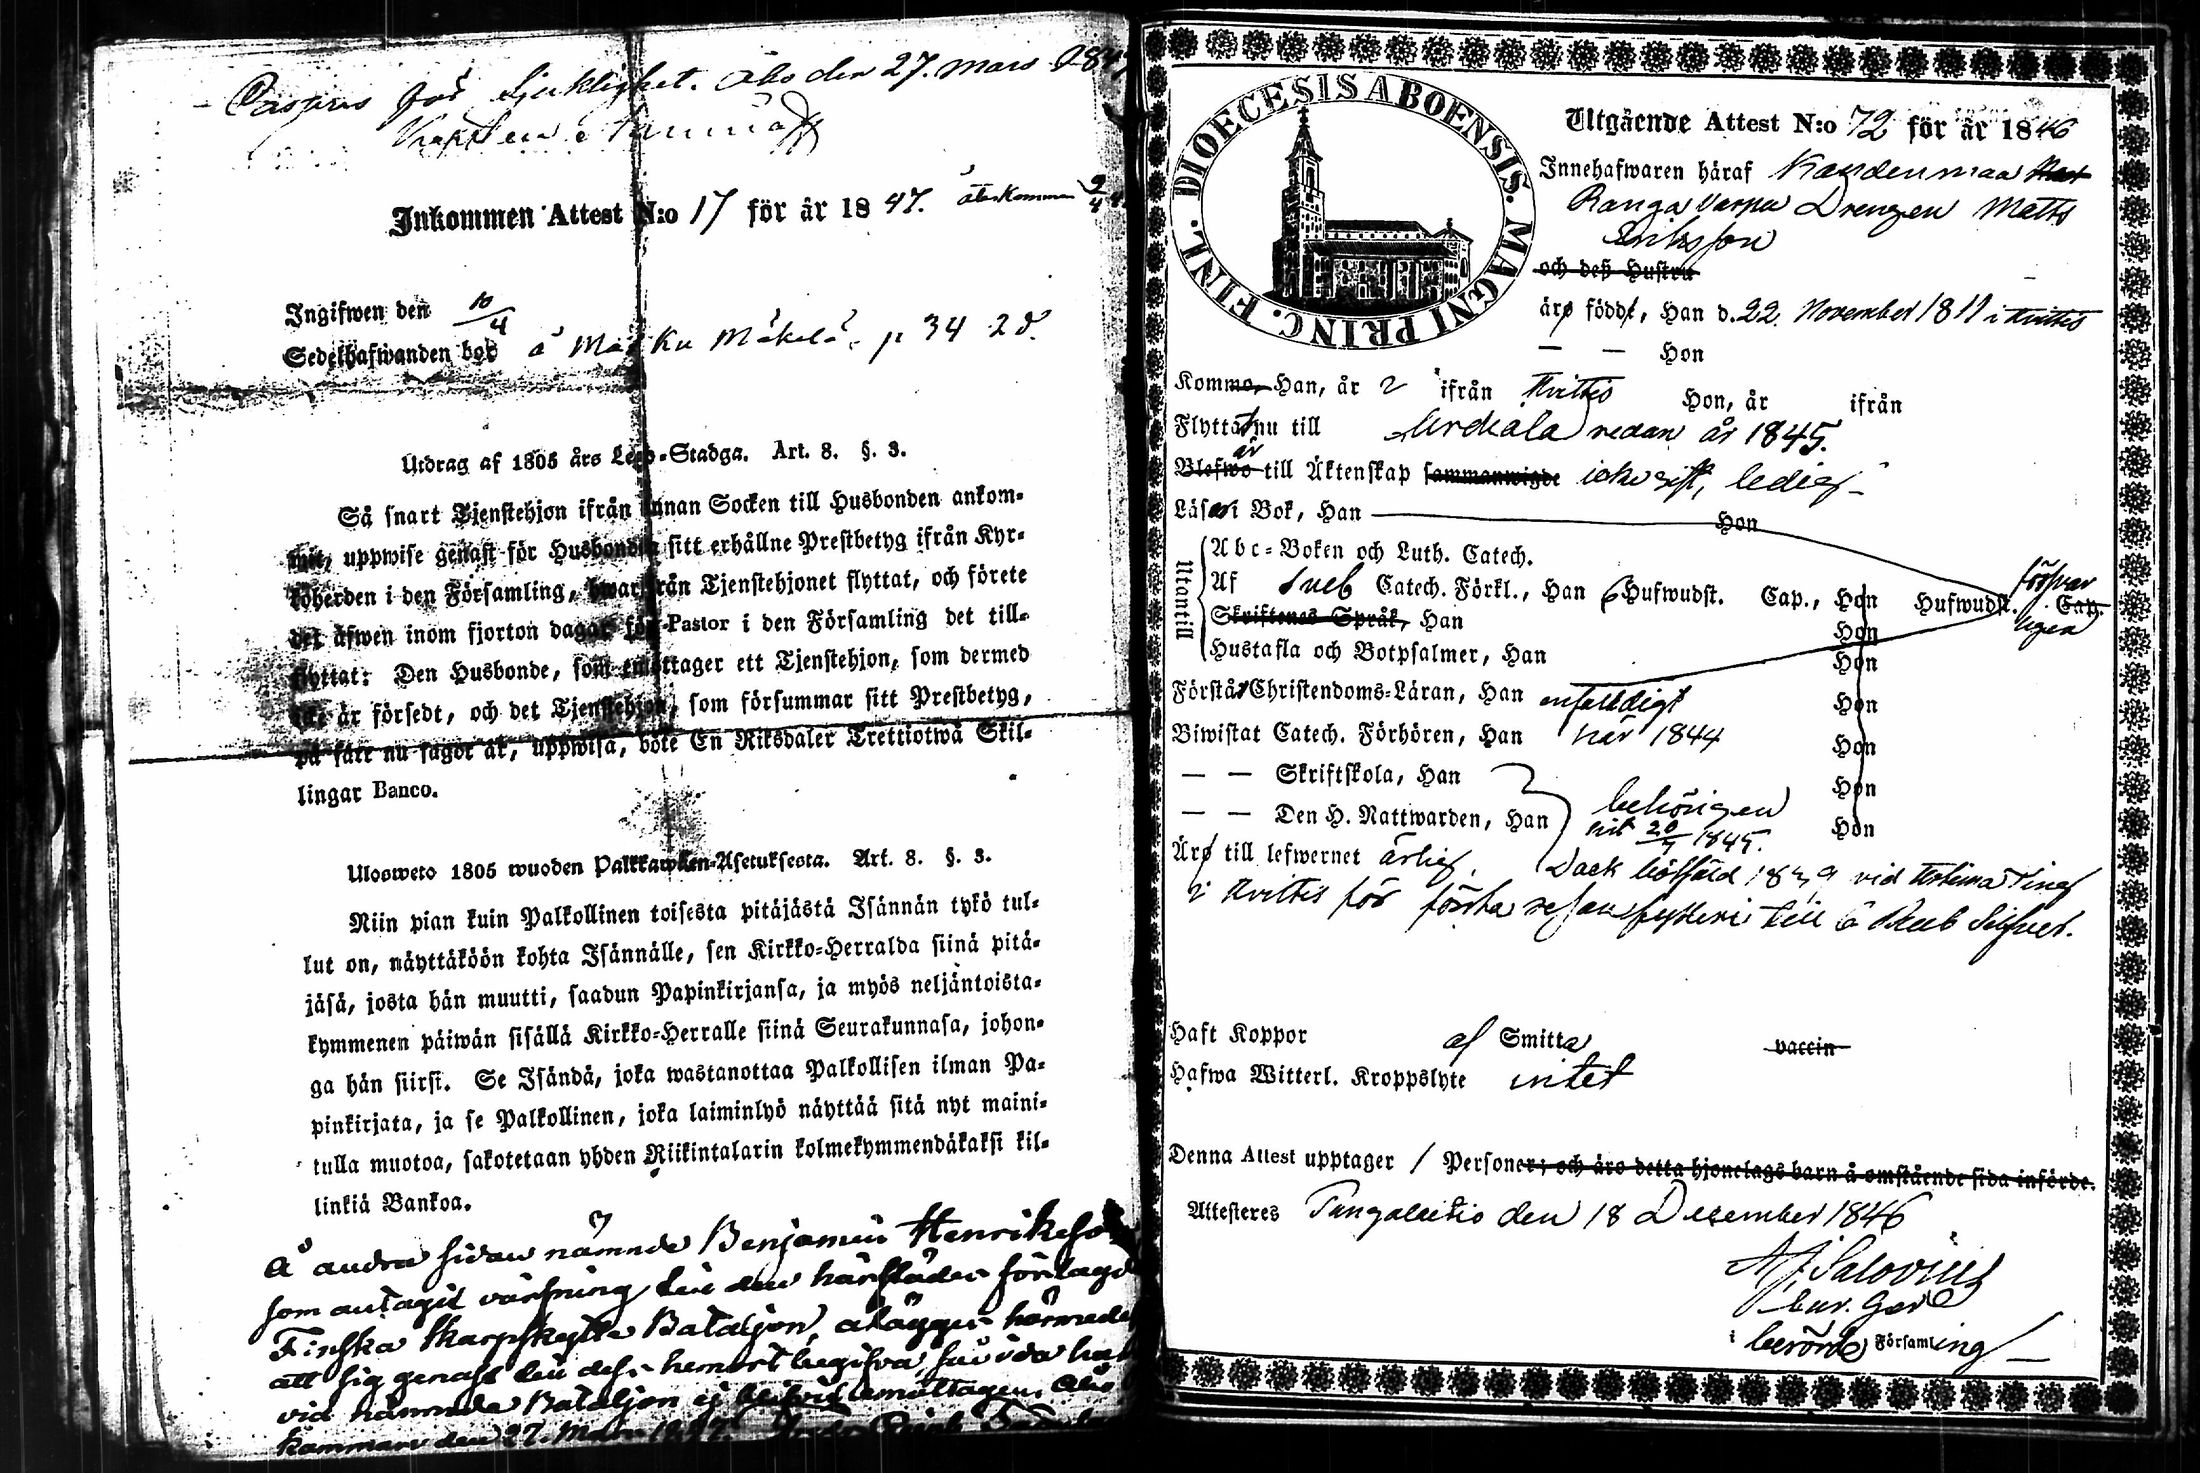 Passeras för Sjuklighet. Åbo den 27. Mars 184
Inkommen Attest N:o 17 för år 1847. återkommen 9/4
Ingifwen den 10/4
Sedelhafwanden bor å Mäkelä p 34
Utdrag af 1805 års Lego-Stadga. Art. 8. §. 3.
Så snart Tjenstehjon ifrån annan Socken till Husbonden ankom-
mit, uppwise genast för Husbonden sitt erhållne Prestbetyg ifrån Kyr-
koherden i den Församling, hwarifrån Tjenstehjonet flyttat, och förete
det äfwen inom fjorton dagar för Pastor i den Församling det till-
flyttat: Den Husbonde, som emottager ett Tjenstehjon, som dermed
icke är försedt, och det Tjenstehjon, som försummar sitt Prestbetyg,
på sätt nu sagdt är, uppwisa, böte En Riksdaler Trettiotwå Skil-
lingar Banco.
Ulosweto 1805 wuoden Palkkawäen-Asetuksesta. Art. 8. §. 3.
Niin pian kuin Palkollinen toisesta pitäjästä Isännän tykö tul-
lut on, näyttäköön kohta Isännälle, sen Kirkko-Herralda siinä pitä-
jäsä, josta hän muutti, saadun Papinkirjansa, ja myös neljäntoista-
kymmenen päiwän sisällä Kirkko-Herralle siinä Seurakunnasa, johon-
ga hän siirsi. Se Isändä, joka wastanottaa Palkollisen ilman Pa-
pinkirjata, ja se Palkollinen, joka laiminlyö näyttää sitä nyt maini-
tulla muotoa, sakotetaan yhden Riikintalarin kolmekymmendäkaksi kil-
linkiä Bankoa.
Å andra sidan nämnde Benjamin Henriksso
som antagit värfning till den härstädes förlagd
Finska Skarpskytte Bataljon, ålägges härmedel
att sig genast till dess hemort begifva, såvida ha
vid nämnde Bataljon ej blifvit emottagen. Åbo
kammare den 27. Mars 1847.
DIOECESIS ABOENSIS. MAGNI PRINC. FINL.
Utgående Attest N:o 72 för år 1846
Innehafwaren häraf Kandenmaa
Ranga Varpu Drengen Matts
Eriksson
och deß Hustru
äro födde, Han d. 22. November 1811 i Kvittis
— — Hon
Kommo, Han, år 2 ifrån Kvittis Hon, år ifrån
Flyttat nu till Urdiala redan år 1845.
är
Blefwo till Äktenskap sammanwigde icke gift, ledig
Läser i Bok, Han Hon
Utantill
Abc-Boken och Luth. Catech.
Af Sveb Catech. Förkl., Han 6 Hufwudst. Cap., Hon Hufwudst. Cap. försvarligen
Skriftenes Språk, Han Hon
Hustafla och Botpsalmer, Han Hon
Förstår Christendoms-Läran, Han enfaldigt Hon
Biwistat Catech. Förhören, Han här 1844 Hon
— — Skriftskola, Han Hon
— — Den H. Nattwarden, Han behörigen sist 20/7 1845. Hon
Äro till lefwernet ärlig. Dock bötfäld 1839 vid Hösttinget
i Kvittis för första resan fylleri till 6 Rub Silfver.
Haft Koppor af Smitta vaccin
Hafwa Witterl. Kroppslyte intet
Denna Attest upptager 1 Personer; och äro detta hjonelags barn å omstående sida införde.
Attesteres Pungalaitio den 18 December 1846
A J Salovius
Cur. Ger
i berörde Församling